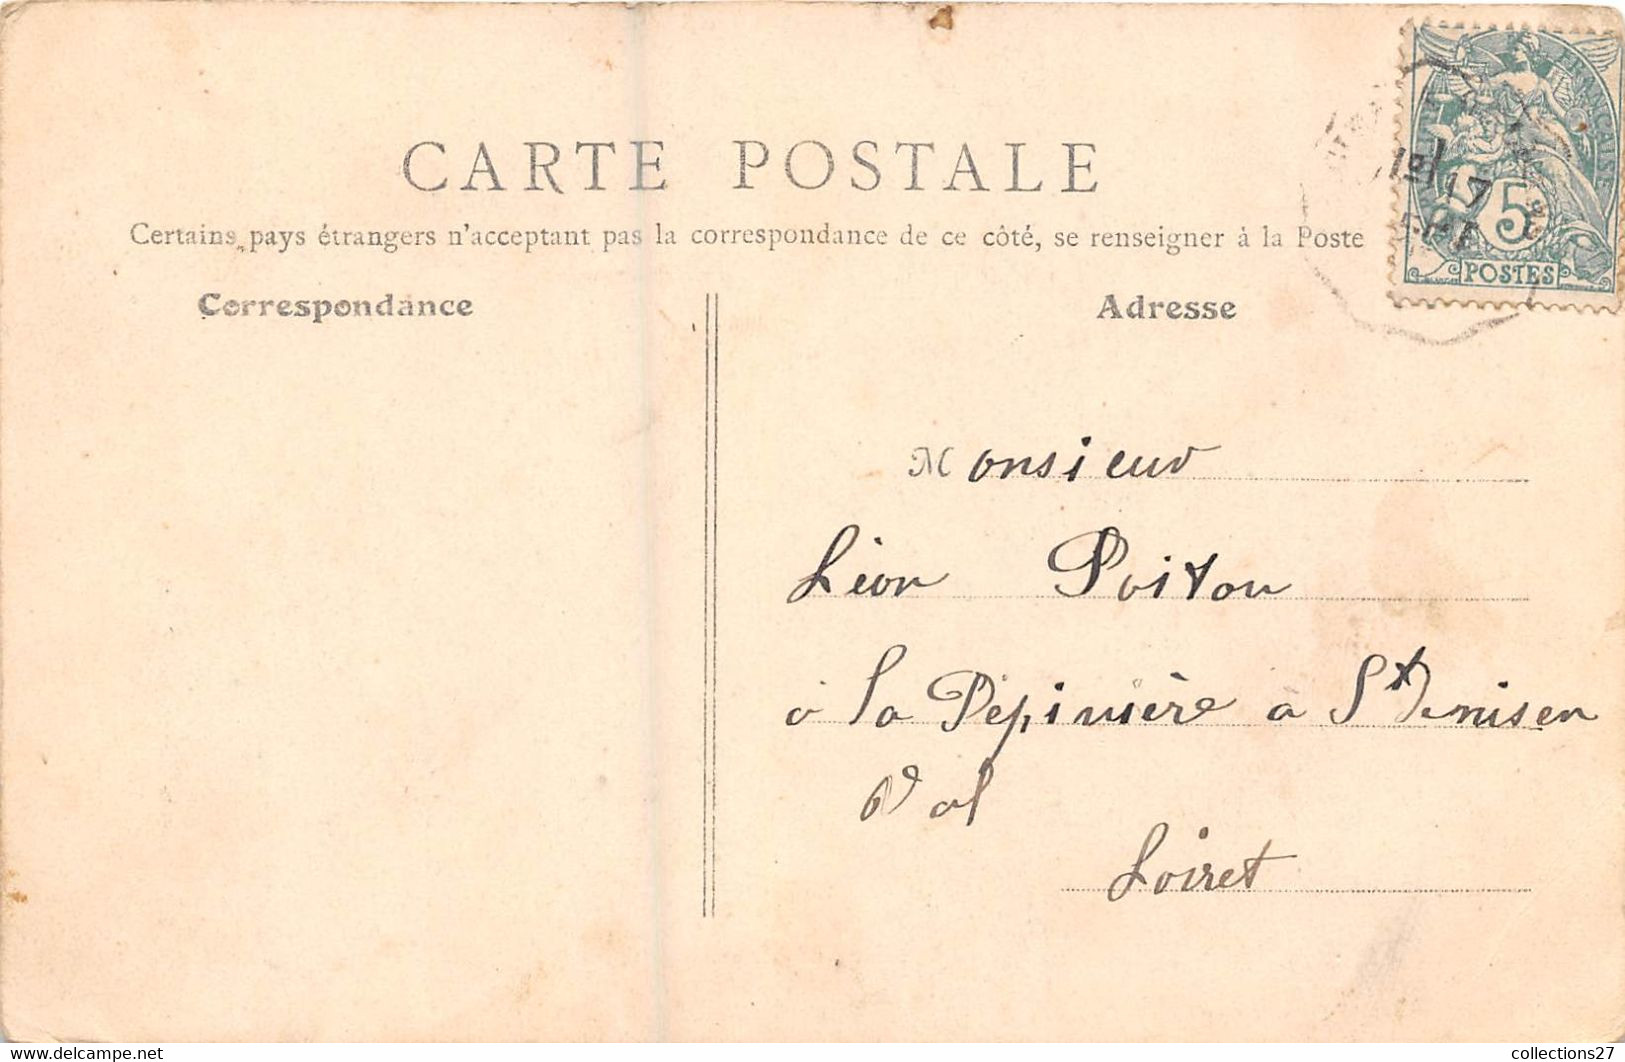 CARTE POSTALE
Certains pays étrangers n'acceptant pas la correspondance de ce côté, se renseigner à la Poste
Correspondance
Adresse
FRANÇAISE
5
POSTES
Monsieur
Léon Poitou
à la Pépinière à St Denis en
Val
Loiret
www.delcampe.net
collections27